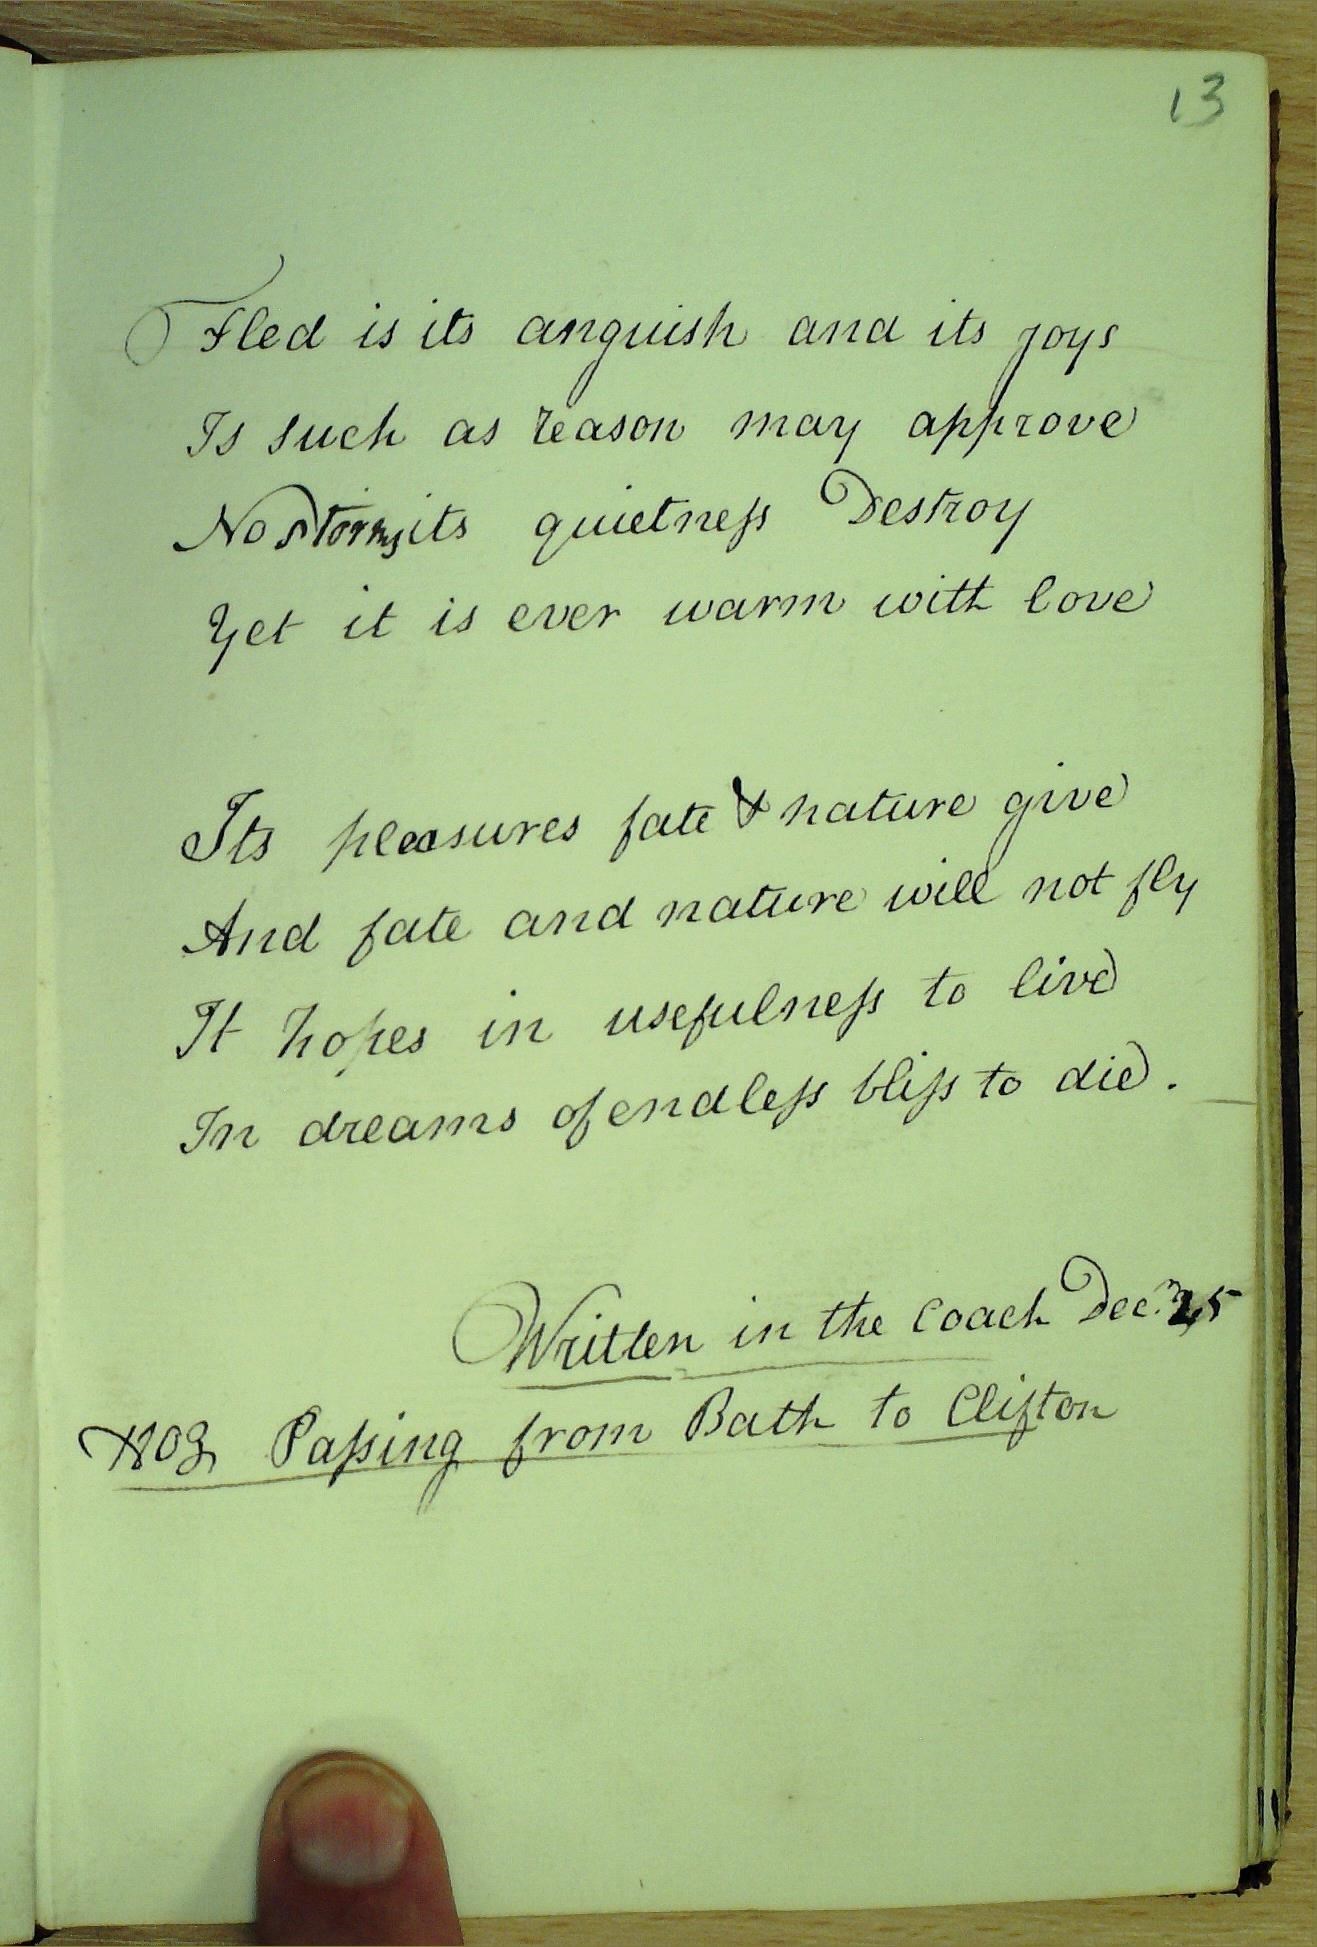 13
Fled is its anguish and its joys
Is such as reason may approve
No storms its quietness Destroy
Yet it is ever warm with love
Its pleasures fate & nature give
And fate and nature will not fly
It hopes in usefulness to live
In dreams of endless bliss to die.
Written in the Coach Decr 25
1803 Passing from Bath to Clifton